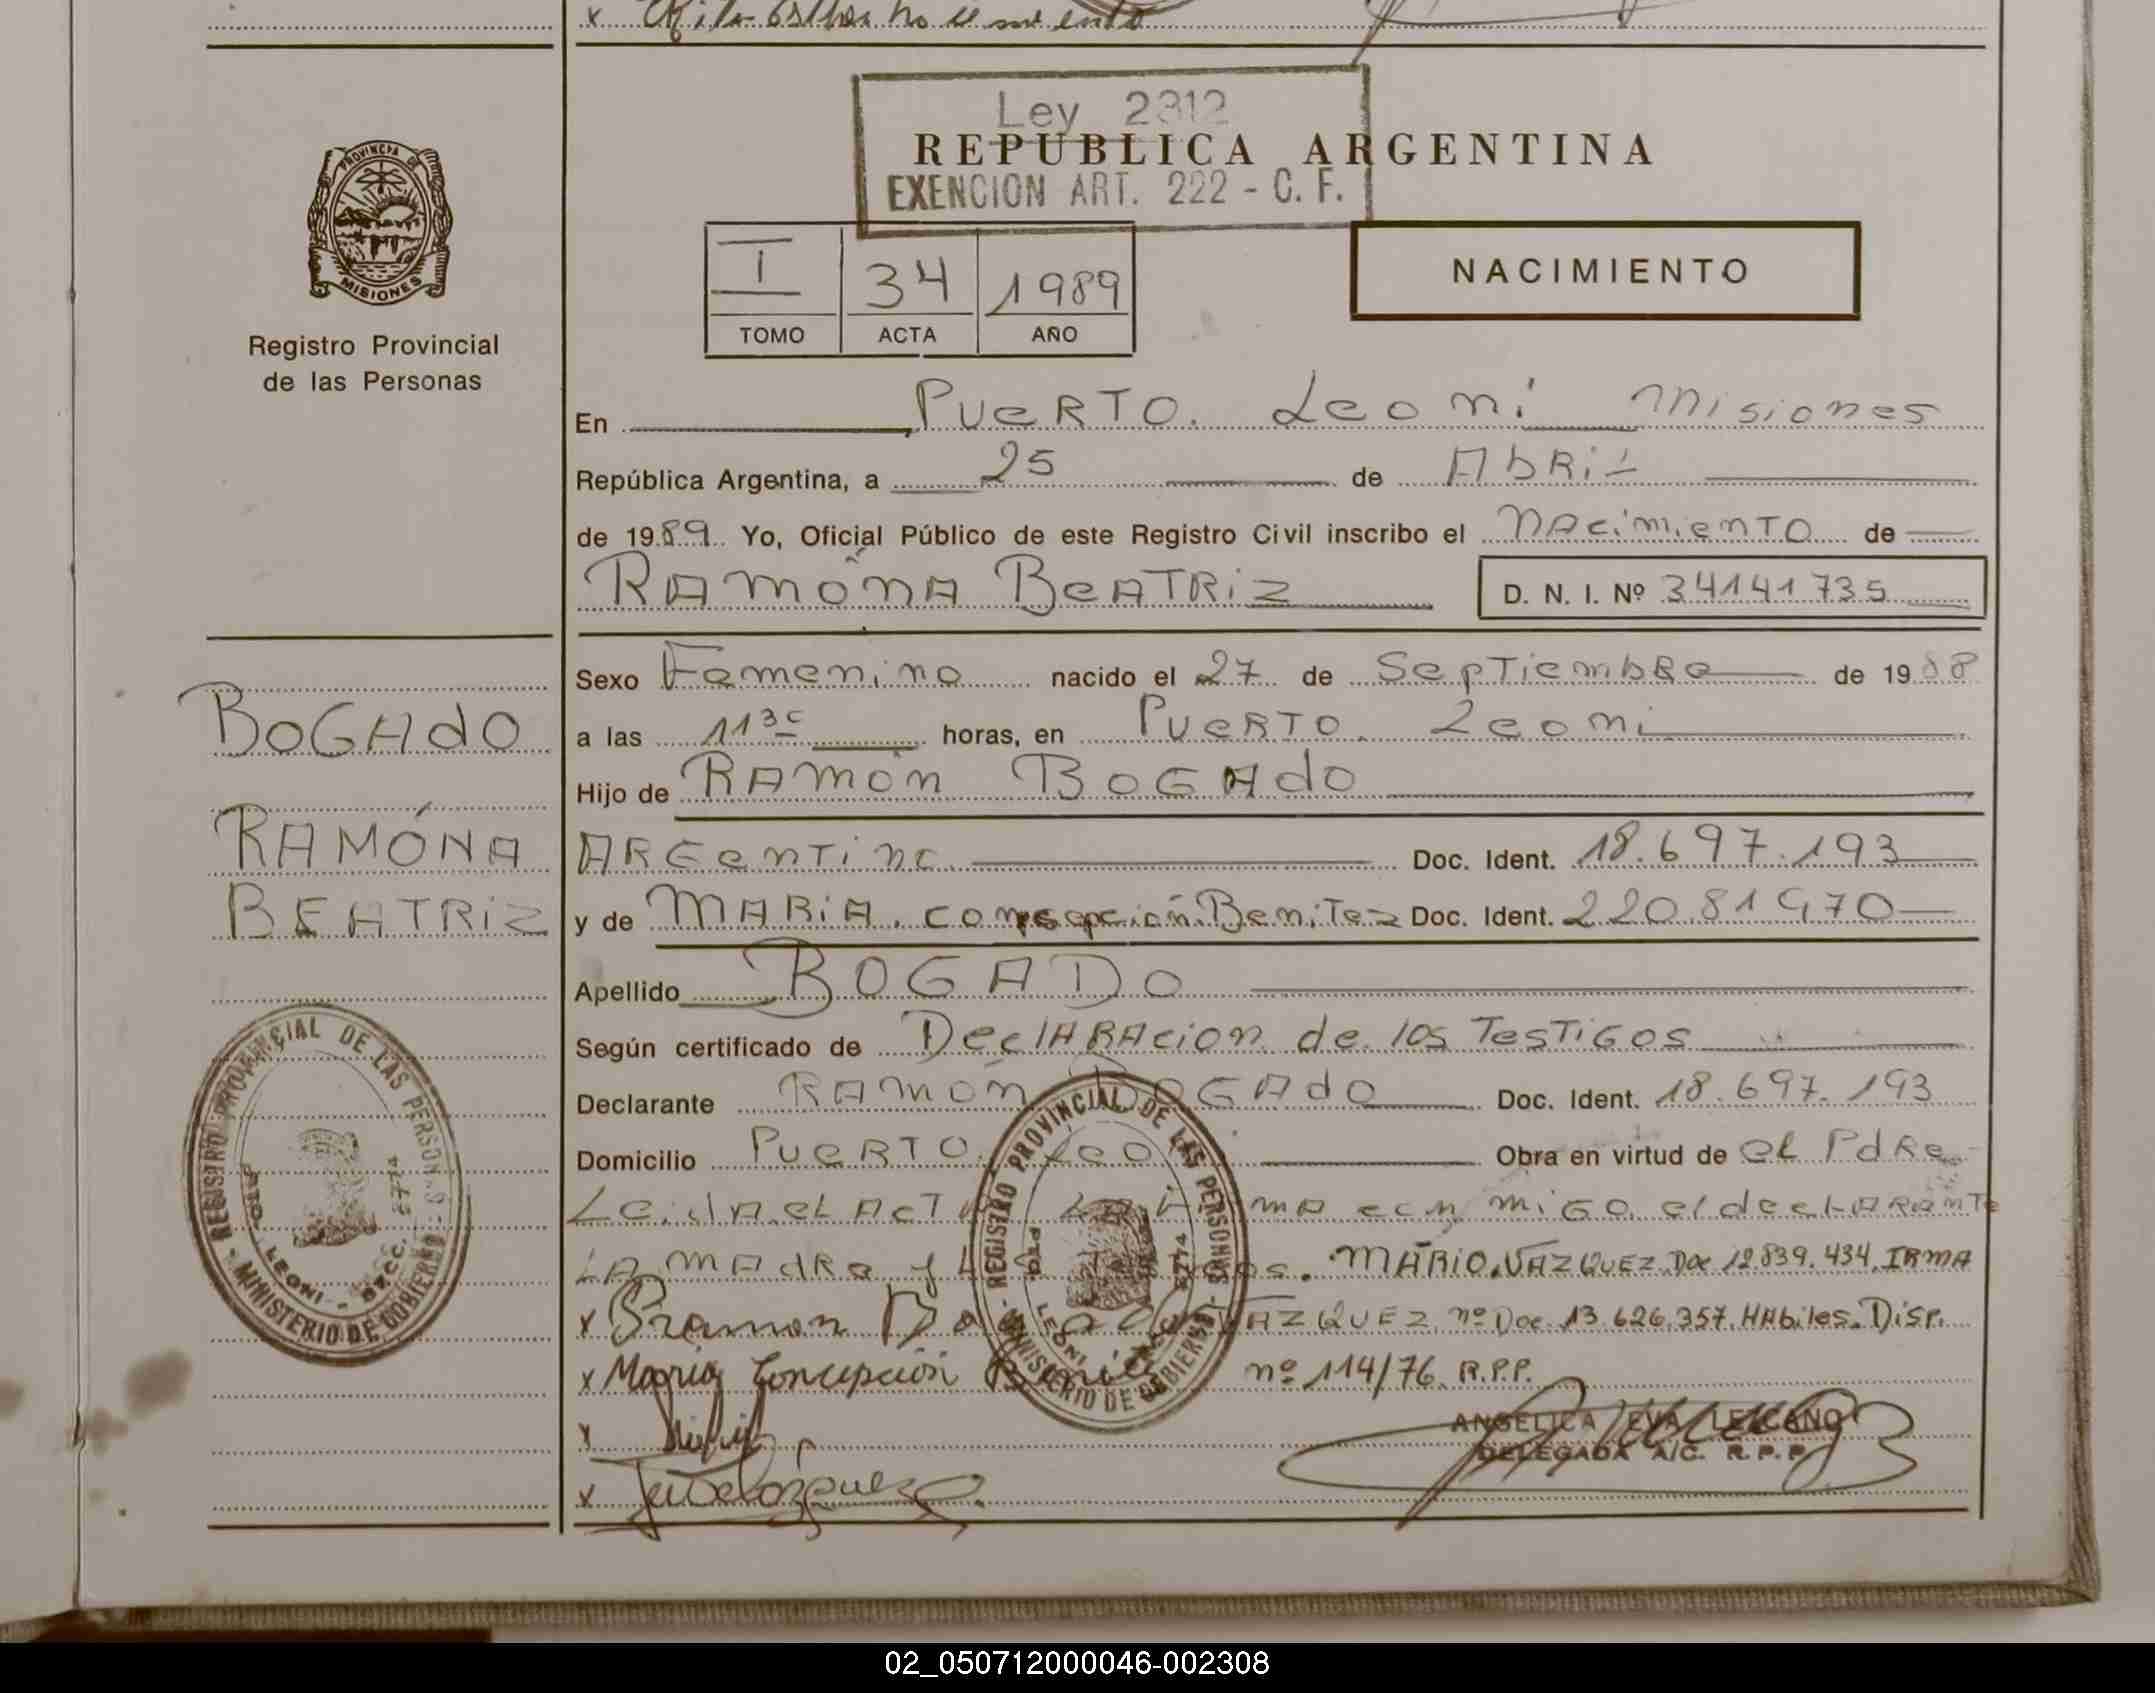 Ley 2312
REPUBLICA ARGENTINA
EXENCION ART. 222 - C. F.
PROVINCIA DE
MISIONES
Registro Provincial
de las Personas
I 34 1989
TOMO ACTA AÑO
NACIMIENTO
En PUeRTO. Leoni Misiones
República Argentina, a 25 de AbRiL
de 1989 Yo, Oficial Público de este Registro Civil inscribo el NAcimienTO de
RAMóNA BeATRiz D. N. I. Nº 34141735
Sexo Femenino nacido el 27 de SepTiembRe de 1988
a las 11 30 horas, en PUeRTO. Leoni
Hijo de RAMón BOGAdO
ARGenTino Doc. Ident. 18.697.193
y de MARiA. consepción. BeniTez Doc. Ident. 22081970
Apellido BOGADO
Según certificado de DeclARAcion de los TesTiGos
Declarante RAMón BOGAdO Doc. Ident. 18.697.193
Domicilio PUeRTO. Leo Obra en virtud de eL PdRe
LeidA eL AcT mA con miGo el declARAnTe
LA mAdRe y MARIO.VAZQUEZ.Doc 12.839.434.IRMA
x Ramon VAZQUEZ nº Doc 13.626.357.HAbiles.Disp.
x Maria Concepción nº 114/76 R.P.P.
x
x
ANGELICA EVA LEZCANO
DELEGADA A/C. R.P.P.
BOGAdO
RAMÓNA
BEATRiZ
REGISTRO PROVINCIAL DE LAS PERSONAS
PTO. LEONI - SECC. 5274
MINISTERIO DE GOBIERNO
REGISTRO PROVINCIAL DE LAS PERSONAS
PTO. LEONI 5274
MINISTERIO DE GOBIERNO
02_050712000046-002308